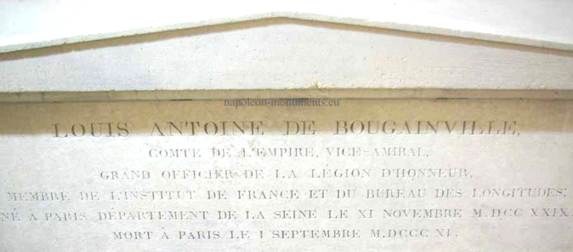 napoleon-monuments.eu
LOUIS ANTOINE DE BOUGAINVILLE,
COMTE DE L'EMPIRE, VICE-AMIRAL,
GRAND OFFICIER DE LA LEGION D'HONNEUR,
MEMBRE DE L'INSTITUT DE FRANCE ET DU BUREAU DES LONGITUDES;
NÉ A PARIS, DEPARTEMENT DE LA SEINE LE XI NOVEMBRE M.DCC XXIX.
MORT A PARIS LE I SEPTEMBRE M.DCCC XI.